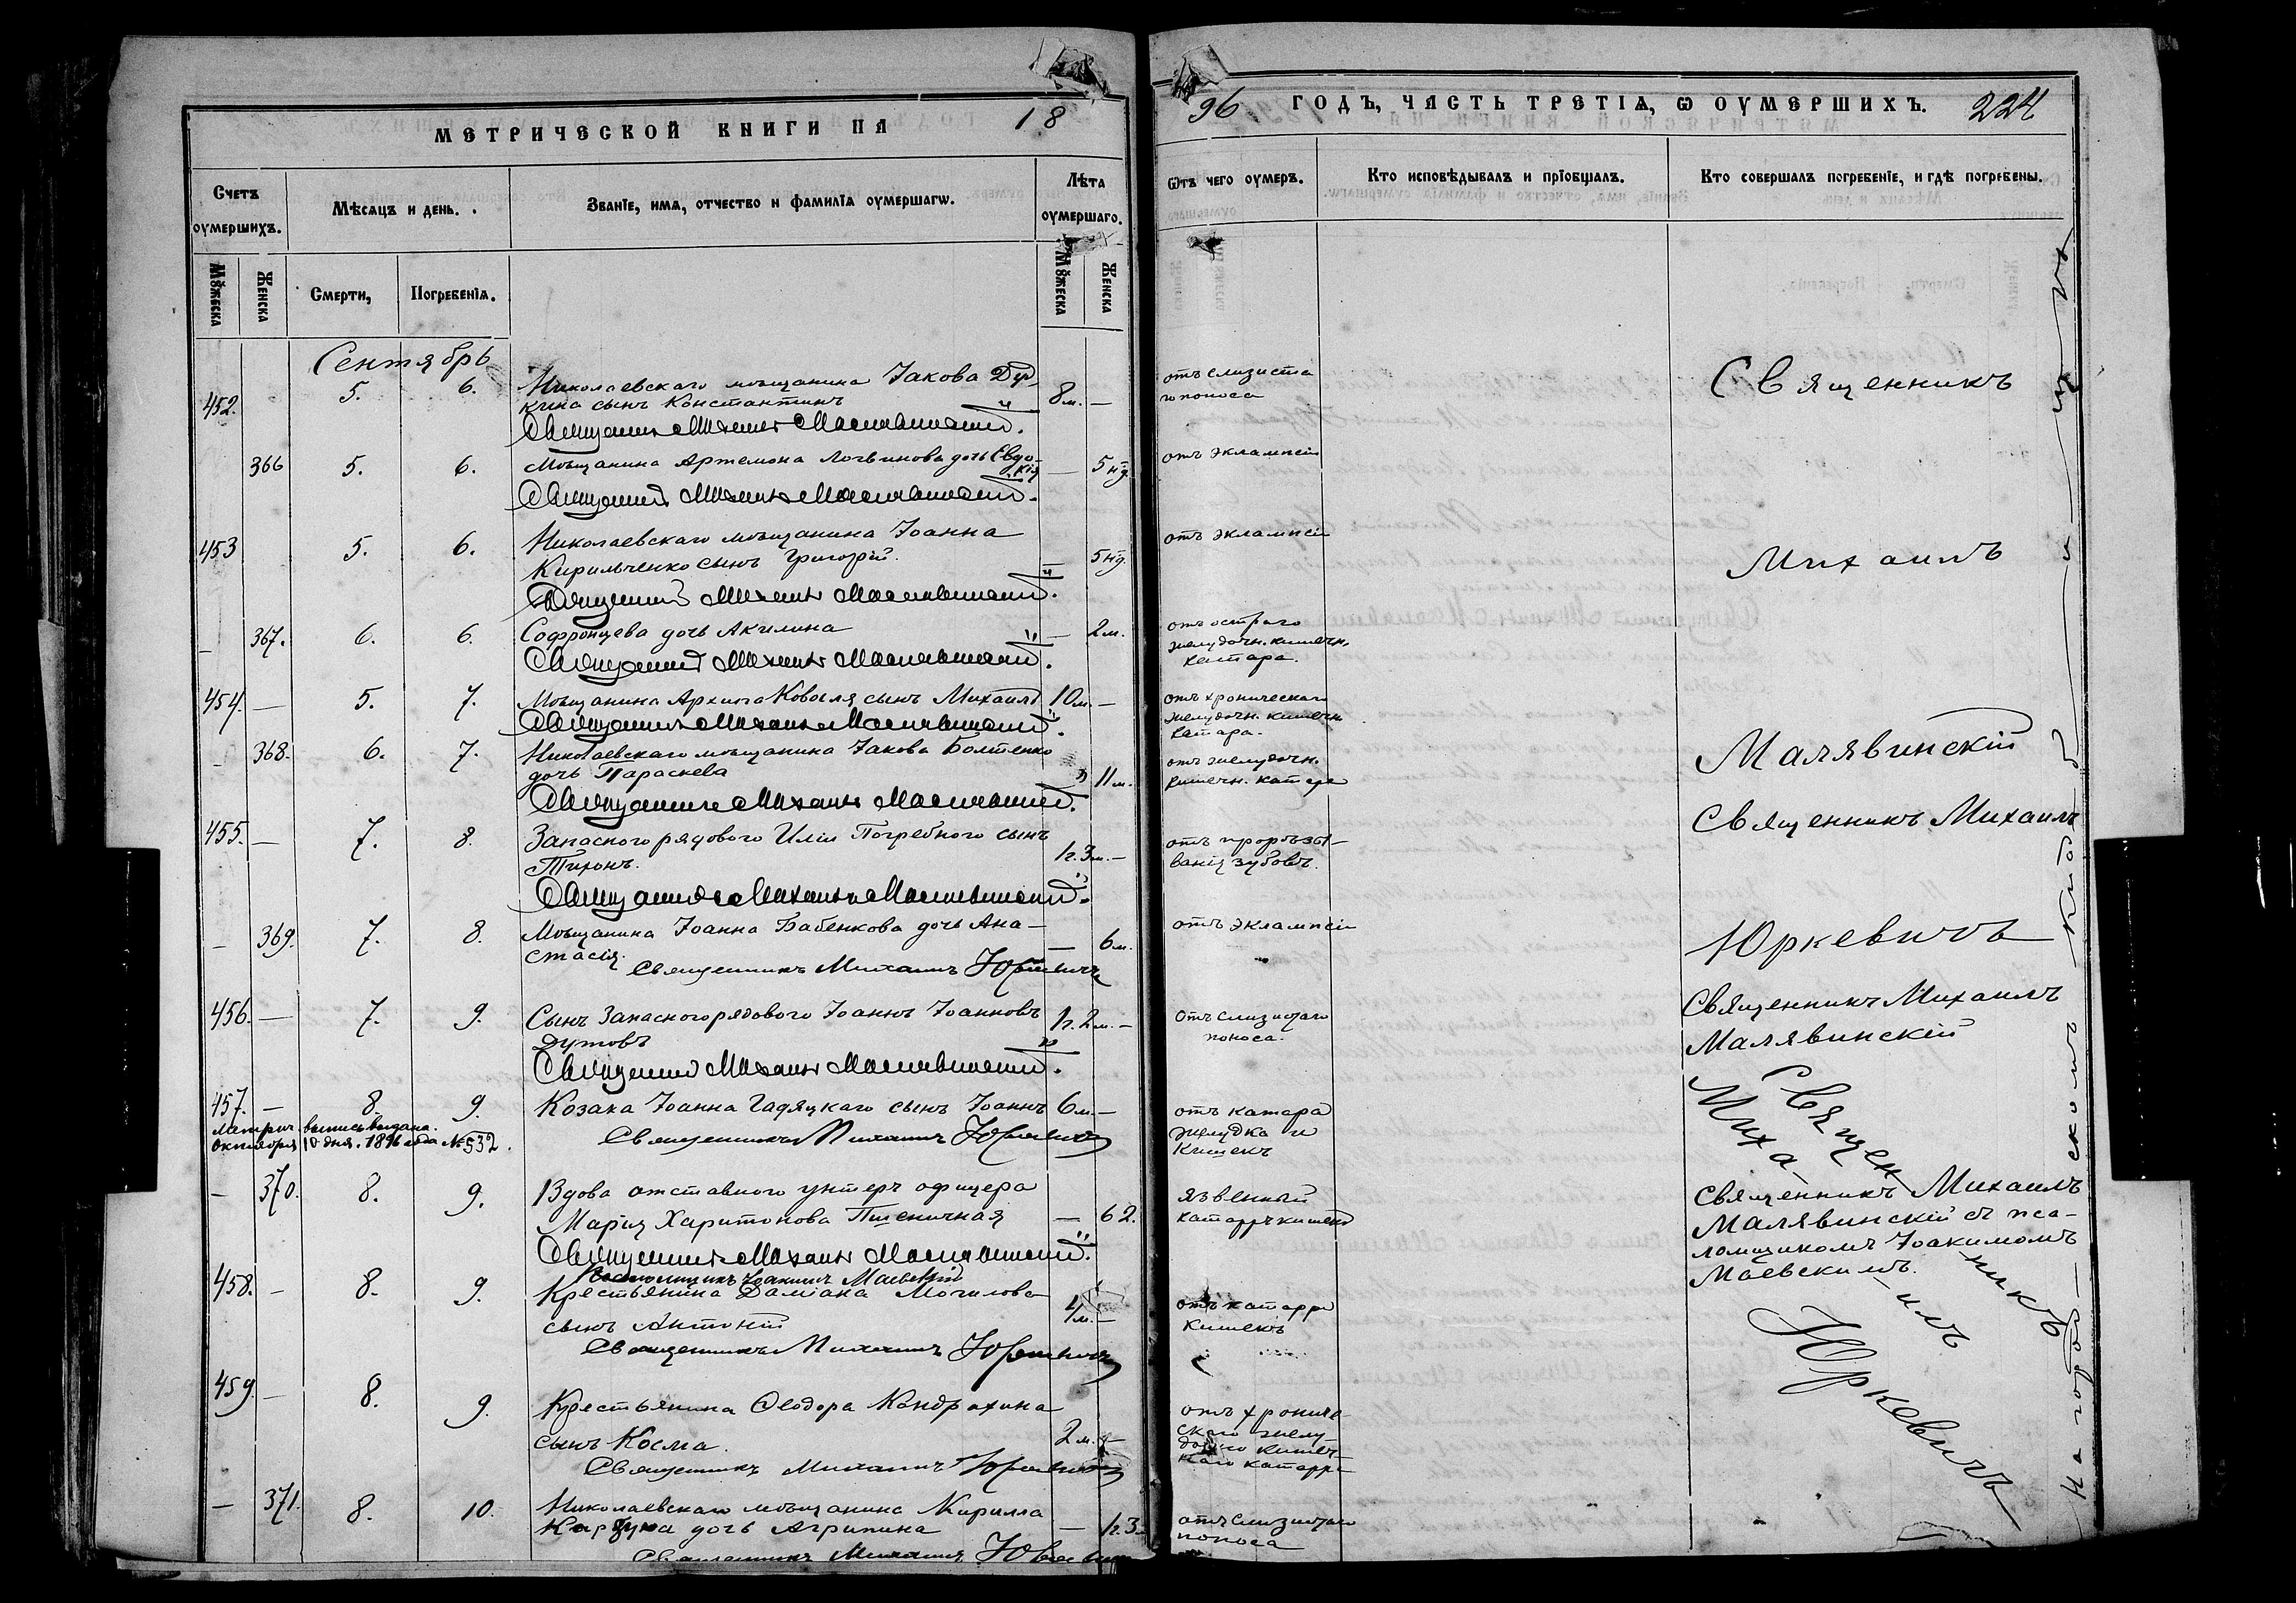 МЕТРИЧЕСКОЙ КНИГИ НА 18
Счетъ оумершихъ.
Мѣсяцъ и день.
Званїе, имѧ, отчество и фамилїѧ оумершагѡ.
Лѣта оумершаго.
Мꙋжеска
Женска
Смерти,
Погребенїѧ.
Мꙋжеска
Женска
Сентябрь
452. 5. 6. Николаевскаго мѣщанина Іакова
кина сынъ Константинъ 8 м. —
Священникъ Михаилъ Малявинскій.
366 5. 6. Мѣщанина Артемона Логвинова дочь Евдо-
кія — 5 нд.
Священникъ Михаилъ Малявинскій.
453 5. 6. Николаевскаго мѣщанина Іоанна
Кирильченко сынъ Григорій. 5 нд.
Священникъ Михаилъ Малявинскій.
— 367. 6. 6. Софронцева дочь Акилина — 2 м.
Священникъ Михаилъ Малявинскій.
454. — 5. 7. Мѣщанина Архипа Ковыля сынъ Михаилъ 10 м. —
Священникъ Михаилъ Малявинскій.
— 368. 6. 7. Николаевскаго мѣщанина Іакова Болтенко
дочь Параскева 11 м.
Священникъ Михаилъ Малявинскій.
455. — 7. 8. Запаснаго рядового Иліи Погребного сынъ
Тихонъ. 1 г. 3 м. —
Священникъ Михаилъ Малявинскій.
— 369. 7. 8. Мѣщанина Іоанна Бабенкова дочь Ана-
стасія. — 6 м.
Священникъ Михаилъ Юркевичъ
456. — 7. 9. Сынъ Запасного рядового Іоаннъ Іоанновъ
Дутовъ 1 г. 2 м. —
Священникъ Михаилъ Малявинскій.
457. — 8. 9. Козака Іоанна Гадяцкаго сынъ Іоаннъ 6 м. —
Метрич. выпись выдана.
Октября 10 дня. 1896 года № 532.
Священникъ Михаилъ Юркевичъ
— 370. 8. 9. Вдова отставного унтеръ офицера
Марія Харитонова Пшеничная — 62.
Священникъ Михаилъ Малявинскій.
Псаломщикъ Іоакимъ Маевскій
458. — 8. 9. Крестьянина Даміана Могилова
сынъ Антоній 4 м. —
Священникъ Михаилъ Юркевичъ
459. — 8. 9. Крестьянина Ѳеодора Кондрахина
сынъ Косма. 2 м. —
Священникъ Михаилъ Юркевичъ
— 371. 8. 10. Николаевскаго мѣщанина Кирилла
дочь Агрипина — 1 г. 3
Священникъ Михаилъ Юркевичъ
96 ГОДЪ, ЧАСТЬ ТРЕТІѦ, Ѡ ОУМЕРШИХЪ. 224
Ѿтъ чего оумеръ.
Кто исповѣдывалъ и прїобщалъ.
Кто совершалъ погребенїе, и гдѣ погребены.
отъ слизиста
го поноса
отъ эклампсіи
отъ эклампсіи
отъ остраго
желудочн. кишечн.
катара.
отъ хроническаго
желудочн. кишечн.
катара.
отъ желудочн.
кишечн. катара
отъ прорѣзы-
ванія зубовъ.
отъ эклампсіи
Отъ слизистаго
поноса.
отъ катара
желудка и
кишекъ
язвенный
катарръ кишекъ
отъ катарра
кишекъ
отъ хрониче-
скаго желу-
дочнаго кишеч-
наго катарра
отъ слизистаго
поноса
Священникъ
Михаилъ
Малявинскій
Священникъ Михаилъ
Юркевичъ
Священникъ Михаилъ
Малявинскій
Священ-
Миха-
Священникъ Михаилъ
Малявинскій съ пса-
ломщикомъ Іоакимомъ
Маевскимъ.
-никъ
-илъ
Юркевичъ
На городскомъ кладбищѣ